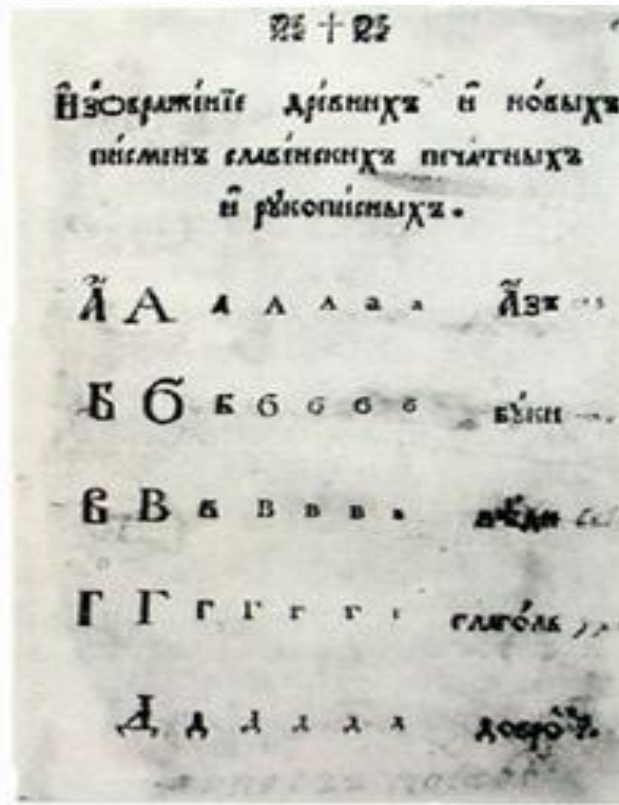 И҆зѡбраже́нїе дре́внихъ и҆ но́выхъ
пи́сменъ славе́нскихъ печа́тныхъ
и҆ рꙋкопи́сныхъ.
А҆́ А а А А а а А҆́зъ
Б Б б б б б б бꙋ́ки
В В в в в в в вѣ́ди
Г Г г г г г г глаго́ль
Д д д д д д добро̀